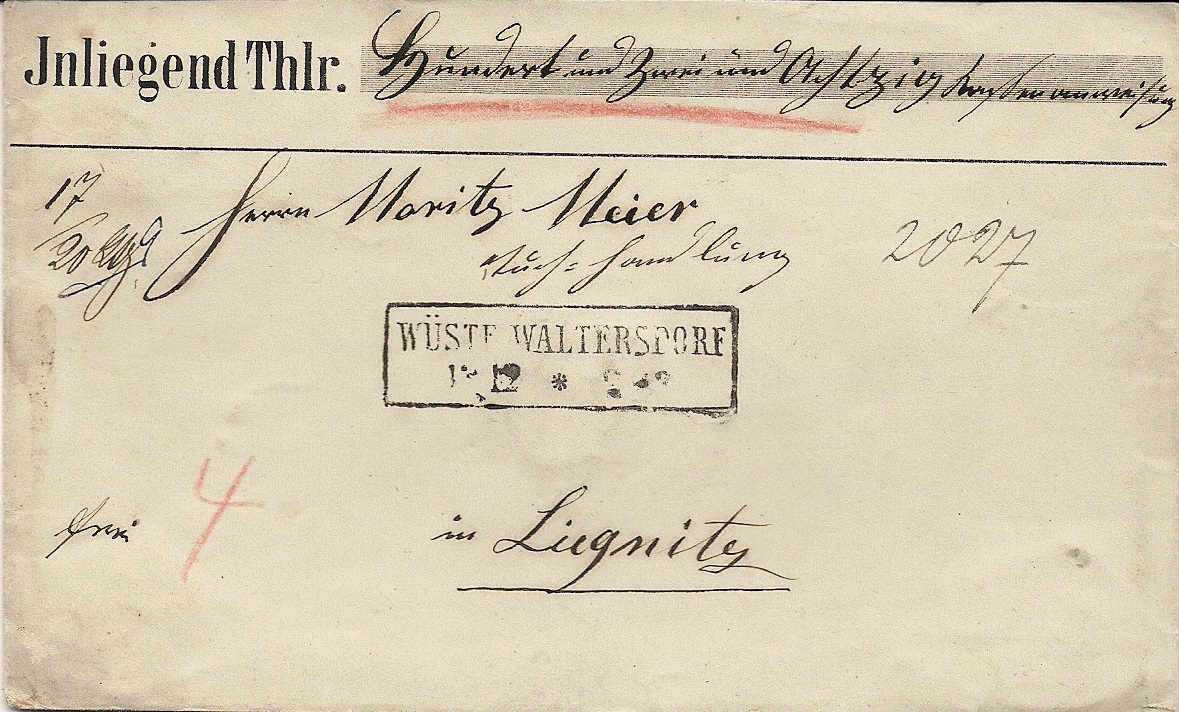 Jnliegend Thlr. Hundert und Zwei und Achtzig Kassenanweisung
17
20
Herrn Moritz Meier
Tuch=Handlung
2027
WÜSTE WALTERSDORF
12 *
frei
4
in Liegnitz